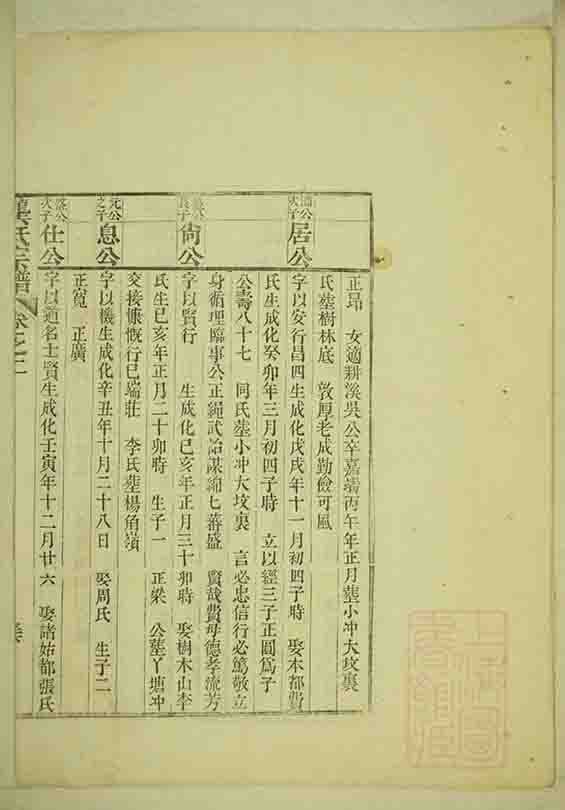 正昂 女適耕溪吳公卒嘉靖丙午年正月塟小冲大坟裏
氏塟樹林底 敦厚老成勤儉可風
清公次子 居公 字以安行昌四生成化戊戌年十一月初四子時 娶本都費
氏生成化癸卯年三月初四子時 立以經三子正圓爲子
公壽八十七 同氏塟小冲大坟裏 言必忠信行必篤敬立
身循理臨事公正繩武詒謀綿七蕃盛 賢哉費母德孝流芳
長子 尙公 字以賢行 生成化己亥年正月三十卯時 娶樹木山李
氏生己亥年正月二十卯時 生子一 正梁 公塟丫塘冲
交接慷慨行已端莊 李氏塟楊角嶺
元公之子 息公 字以機生成化辛丑年十月二十八日 娶周氏 生子二
正寬 正廣
公次子 仕公 字以道名士賢生成化壬寅年十二月廿六 娶諸始都張氏
氏宗譜 卷之二